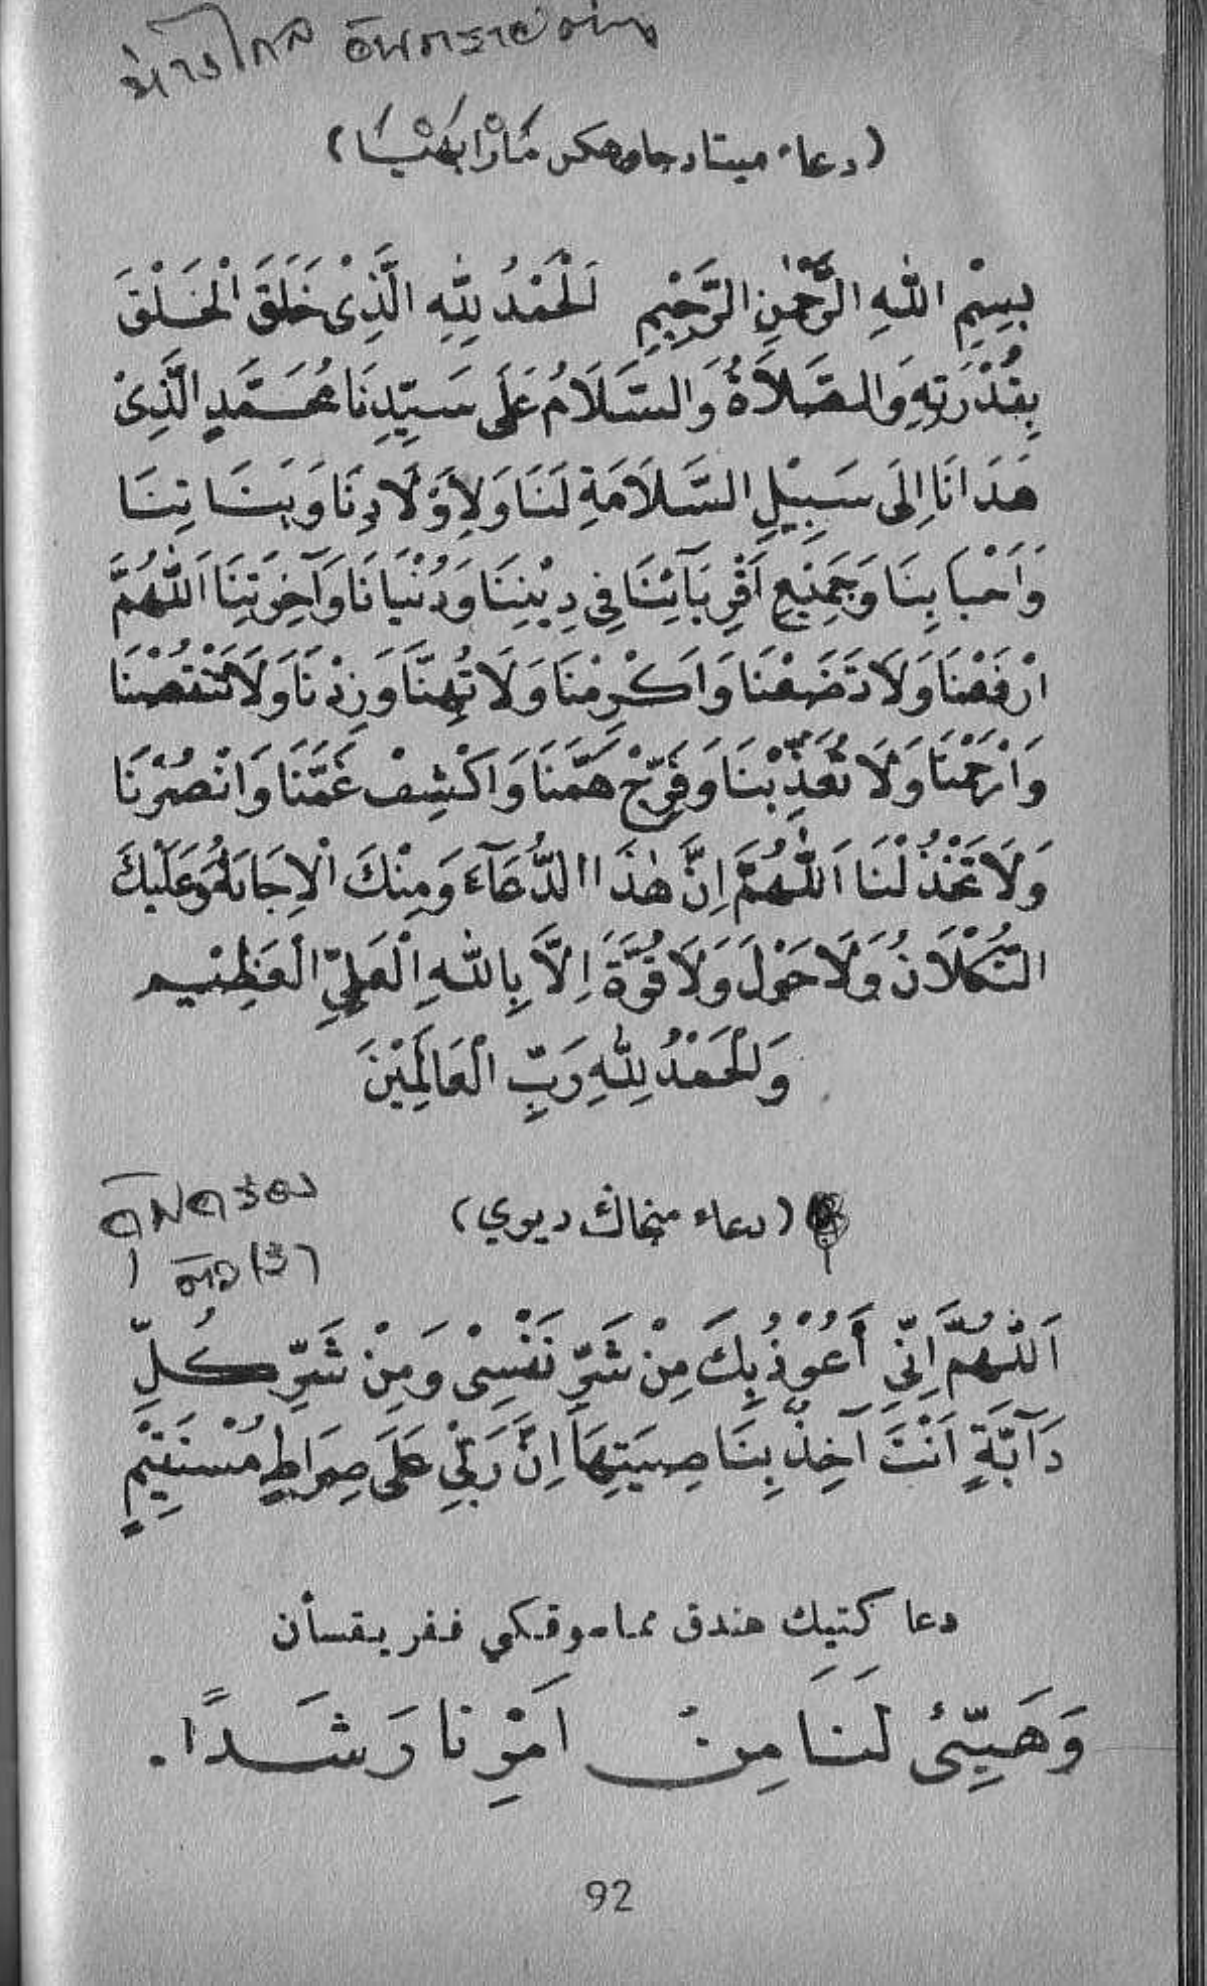 ห่างไกล อันตรายต่างๆ
(دعاء مينتا دجاوهكن مارا بهيا)
بِسْمِ اللهِ الرَّحْمٰنِ الرَّحِيْمِ اَلْحَمْدُ لِلّٰهِ الَّذِىْ خَلَقَ الْخَلْقَ
بِقُدْرَتِهِ وَالصَّلَاةُ وَالسَّلَامُ عَلَى سَيِّدِنَا مُحَمَّدٍ الَّذِىْ
هَدَانَا اِلَى سَبِيْلِ السَّلَامَةِ لَنَا وَلِاَوْلَادِنَا وَبَنَاتِنَا
وَاَحْبَابِنَا وَجَمِيْعِ اَقْرِبَآئِنَا فِى دِيْنِنَا وَدُنْيَانَا وَآخِرَتِنَا اَللّٰهُمَّ
ارْفَعْنَا وَلَا تَضَعْنَا وَاَكْرِمْنَا وَلَا تُهِنَّا وَزِدْنَا وَلَا تَنْقُصْنَا
وَارْحَمْنَا وَلَا تُعَذِّبْنَا وَفَرِّجْ هَمَّنَا وَاكْشِفْ غَمَّنَا وَانْصُرْنَا
وَلَا تَخْذُلْنَا اَللّٰهُمَّ اِنَّ هٰذَا الدُّعَآءَ وَمِنْكَ الْاِجَابَةُ وَعَلَيْكَ
التُّكْلَانُ وَلَا حَوْلَ وَلَا قُوَّةَ اِلَّا بِاللهِ الْعَلِيِّ الْعَظِيْمِ
وَالْحَمْدُ لِلّٰهِ رَبِّ الْعَالَمِيْنَ
(دعاء منجاڬ ديري)
اَللّٰهُمَّ اِنِّي أَعُوْذُ بِكَ مِنْ شَرِّ نَفْسِىْ وَمِنْ شَرِّ كُلِّ
دَآبَّةٍ اَنْتَ آخِذٌ بِنَاصِيَتِهَا اِنَّ رَبِّيْ عَلَى صِرَاطٍ مُسْتَقِيْمٍ
دعا كتيك هندق مماسوقكي ففريقسأن
وَهَيِّئْ لَنَا مِنْ اَمْرِنَا رَشَدًا.
92